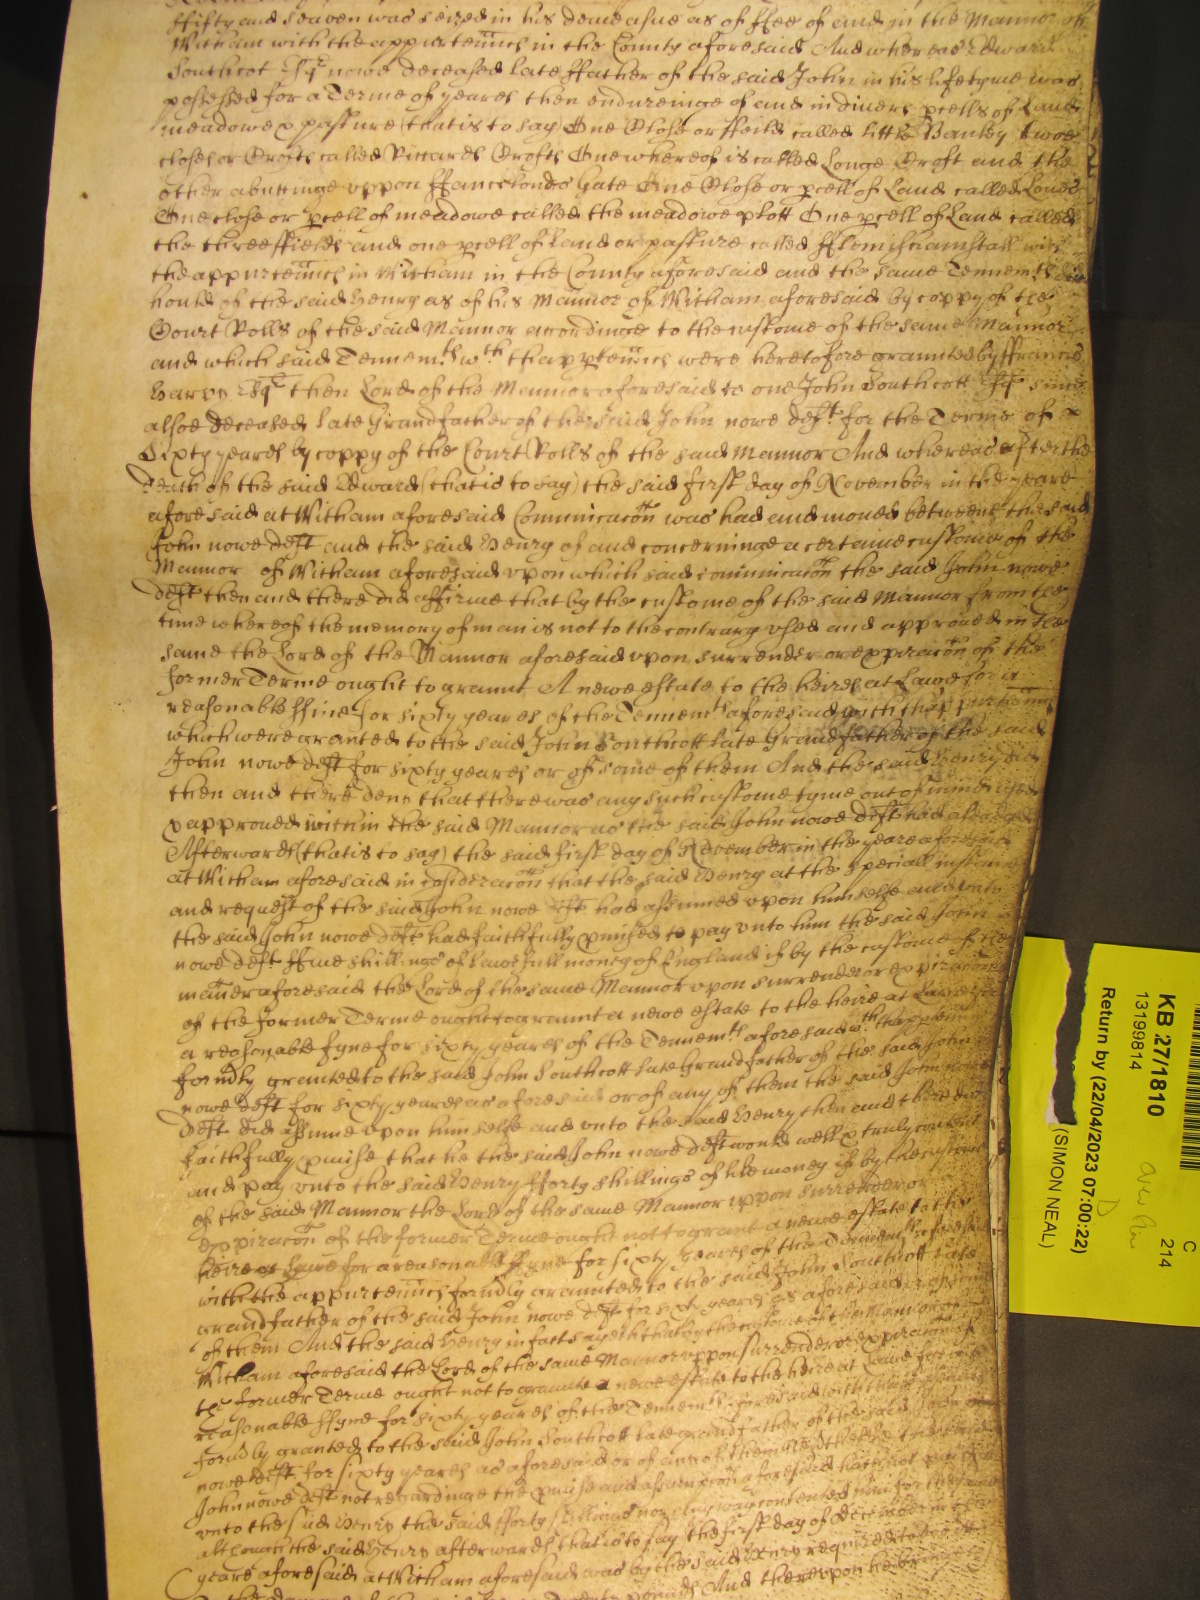 ffifty and seaven was seized in his demeasne as of ffee of and in the Mannor of
Witham with the appurtenncs in the County aforesaid And whereas Edward
Southcot Esqr nowe deceased late ffather of the said John in his lifetyme was
possessed for a Terme of yeares then endureinge of and in divers pcells of Land
meadowe & pasture (that is to say) One Close or ffeild called little twoe
closes or Crofts called Riccards Crofts One whereof is called Longe Croft and the
other abuttinge uppon Gate One Close or pcell of Land called
One close or pcell of meadowe called the meadowe plott One pcell of Land called
the three ffields and one pcell of Land or pasture called with
the appurtenncs in Witham in the County aforesaid and the same Tennemts did
hould of the said Henry as of his Mannor of Witham aforesaid by coppy of the
Court Rolls of the said Mannor accordinge to the custome of the same Mannor
and which said Tennemts wth thapprtenncs were heretofore graunted by ffrancis
Harvy Esqr then Lord of the Mannor aforesaid to one John Southcott Esqr since
alsoe deceased late Grandfather of the said John nowe deft for the Terme of
Sixty yeares by coppy of the Court Rolls of the said Mannor And whereas after the
death of the said Edward (that is to say) the said first day of November in the yeare
aforesaid at Witham aforesaid Communicacon was had and moved betweene the said
John nowe deft and the said Henry of and concerninge a certaine custome of the
Mannor of Witham aforesaid upon which said communicacon the said John nowe
deft then and there did affirme that by the custome of the said Mannor from the
time whereof the memory of man is not to the contrary used and approved in the
same the Lord of the Mannor aforesaid upon surrender or expiracon of the
former Terme ought to graunt A newe estate to the heires at Lawe for a
reasonable ffine for sixty yeares of the Tennemts aforesaid with thappurtenncs
which were granted to the said John Southcott late Grandfather of the said
John nowe deft for sixty yeares or of some of them And the said Henry did
then and there deny that there was any such custome tyme out of mind used
& approved within the said Mannor as the said John nowe deft had
Afterwards (that is to say) the said first day of November in the yeare aforesaid
at Witham aforesaid in consideracon that the said Henry at the speciall instance
and request of the said John nowe deft had assumed upon himselfe and unto
the said John nowe deft had faithfully pmised to pay unto him the said John
nowe deft ffive shillings of lawfull money of England if by the custome of the
manner aforesaid the Lord of the same Mannor upon surrender or expiracon
of the former Terme ought to graunt a newe estate to the heire at Lawe for
a reasonable fyne for sixty yeares of the Tennemts aforesaid wth thapptenncs
formdly granted to the said John Southcott late Grandfather of the said John
nowe deft for sixty yeares as aforesaid or of any of them the said John nowe
deft did assume upon himselfe and unto the said Henry then and there did
faithfully pmise that he the said John nowe deft would well & truly content
and pay unto the said Henry fforty shillings of like money if by the custome
of the said Mannor the Lord of the same Mannor uppon surrender or
expiracon of the former Terme ought not to grant a newe estate to the
heire at Lawe for a reasonable ffyne for sixty yeares of the Tennemts aforesaid
with the appurtenncs formdly graunted to the said John Southcott late
grandfather of the said John nowe deft for sixty yeares as aforesaid or of some
of them And the said Henry in fact sayeth that by the custome of the Mannor of
Witham aforesaid the Lord of the same Mannor uppon surrender or expiracon of
the former Terme ought not to graunte a newe estate to the heire at Lawe for
reasonable ffyne for sixty yeares of the Tennemts aforesaid with
formdly granted to the said John Southcott late grandfather of the said John
nowe deft for sixty yeares as aforesaid or of any of them
John nowe deft not regardinge the pmise and assumpcon aforesaid hath not
unto the said Henry the said fforty shillings nor any way contented him for the same
although the said Henry afterwards that is to say the first day of December in the
yeare aforesaid at Witham aforesaid was by the said Henry required to
pounds And thereupon he
KB 27/1810
13199814
Return by (22/04/2023 07:00:22)
(SIMON NEAL)
C
214
D